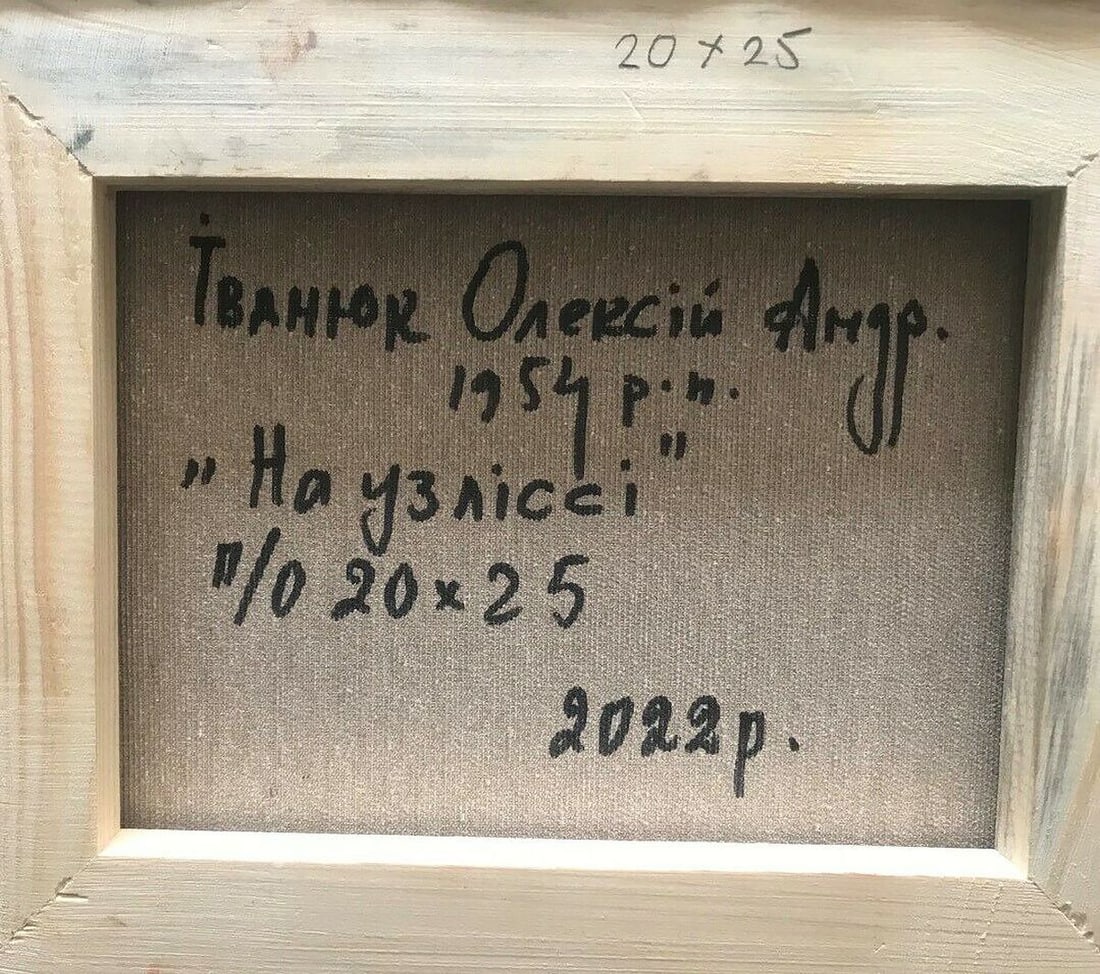 20 x 25
Іванюк Олексій Андр.
1954 р.н.
"На узліссі"
п/о 20x25
2022р.